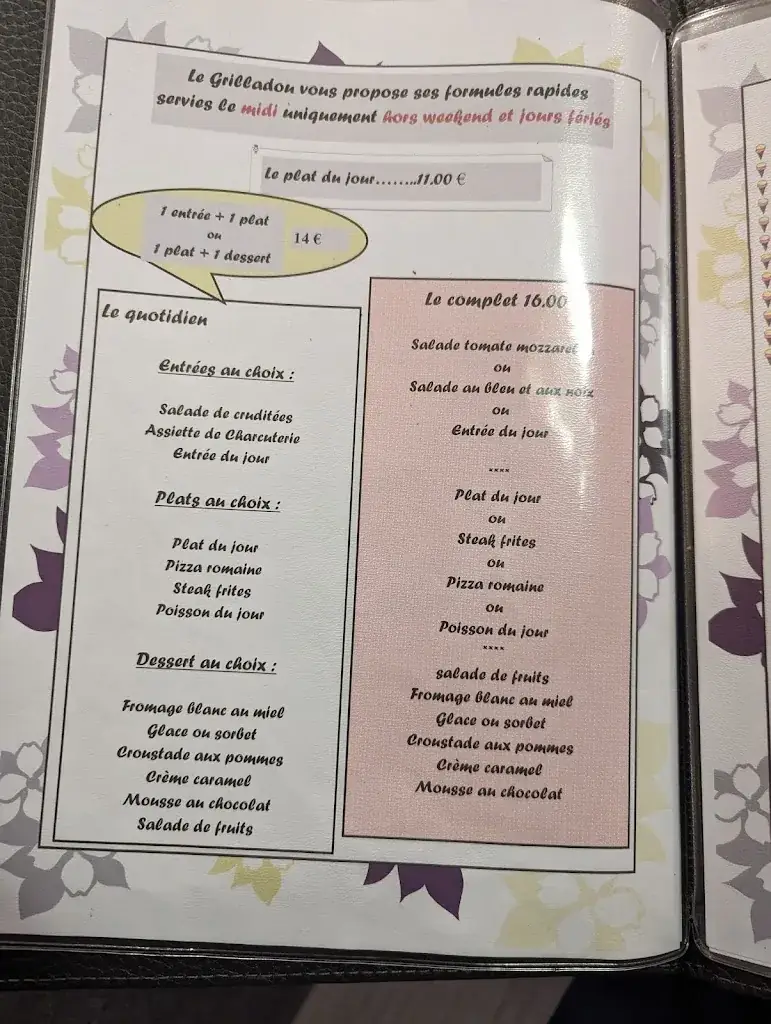 Le Grilladou vous propose ses formules rapides
servies le midi uniquement hors weekend et jours fériés
Le plat du jour........11.00 €
1 entrée + 1 plat
ou
1 plat + 1 dessert
14 €
Le quotidien
Entrées au choix :
Salade de crudités
Assiette de Charcuterie
Entrée du jour
Plats au choix :
Plat du jour
Pizza romaine
Steak frites
Poisson du jour
Dessert au choix :
Fromage blanc au miel
Glace ou sorbet
Croustade aux pommes
Crème caramel
Mousse au chocolat
Salade de fruits
Le complet 16.00
Salade tomate
ou
Salade au bleu et aux noix
ou
Entrée du jour
****
Plat du jour
ou
Steak frites
ou
Pizza romaine
ou
Poisson du jour
****
salade de fruits
Fromage blanc au miel
Glace ou sorbet
Croustade aux pommes
Crème caramel
Mousse au chocolat